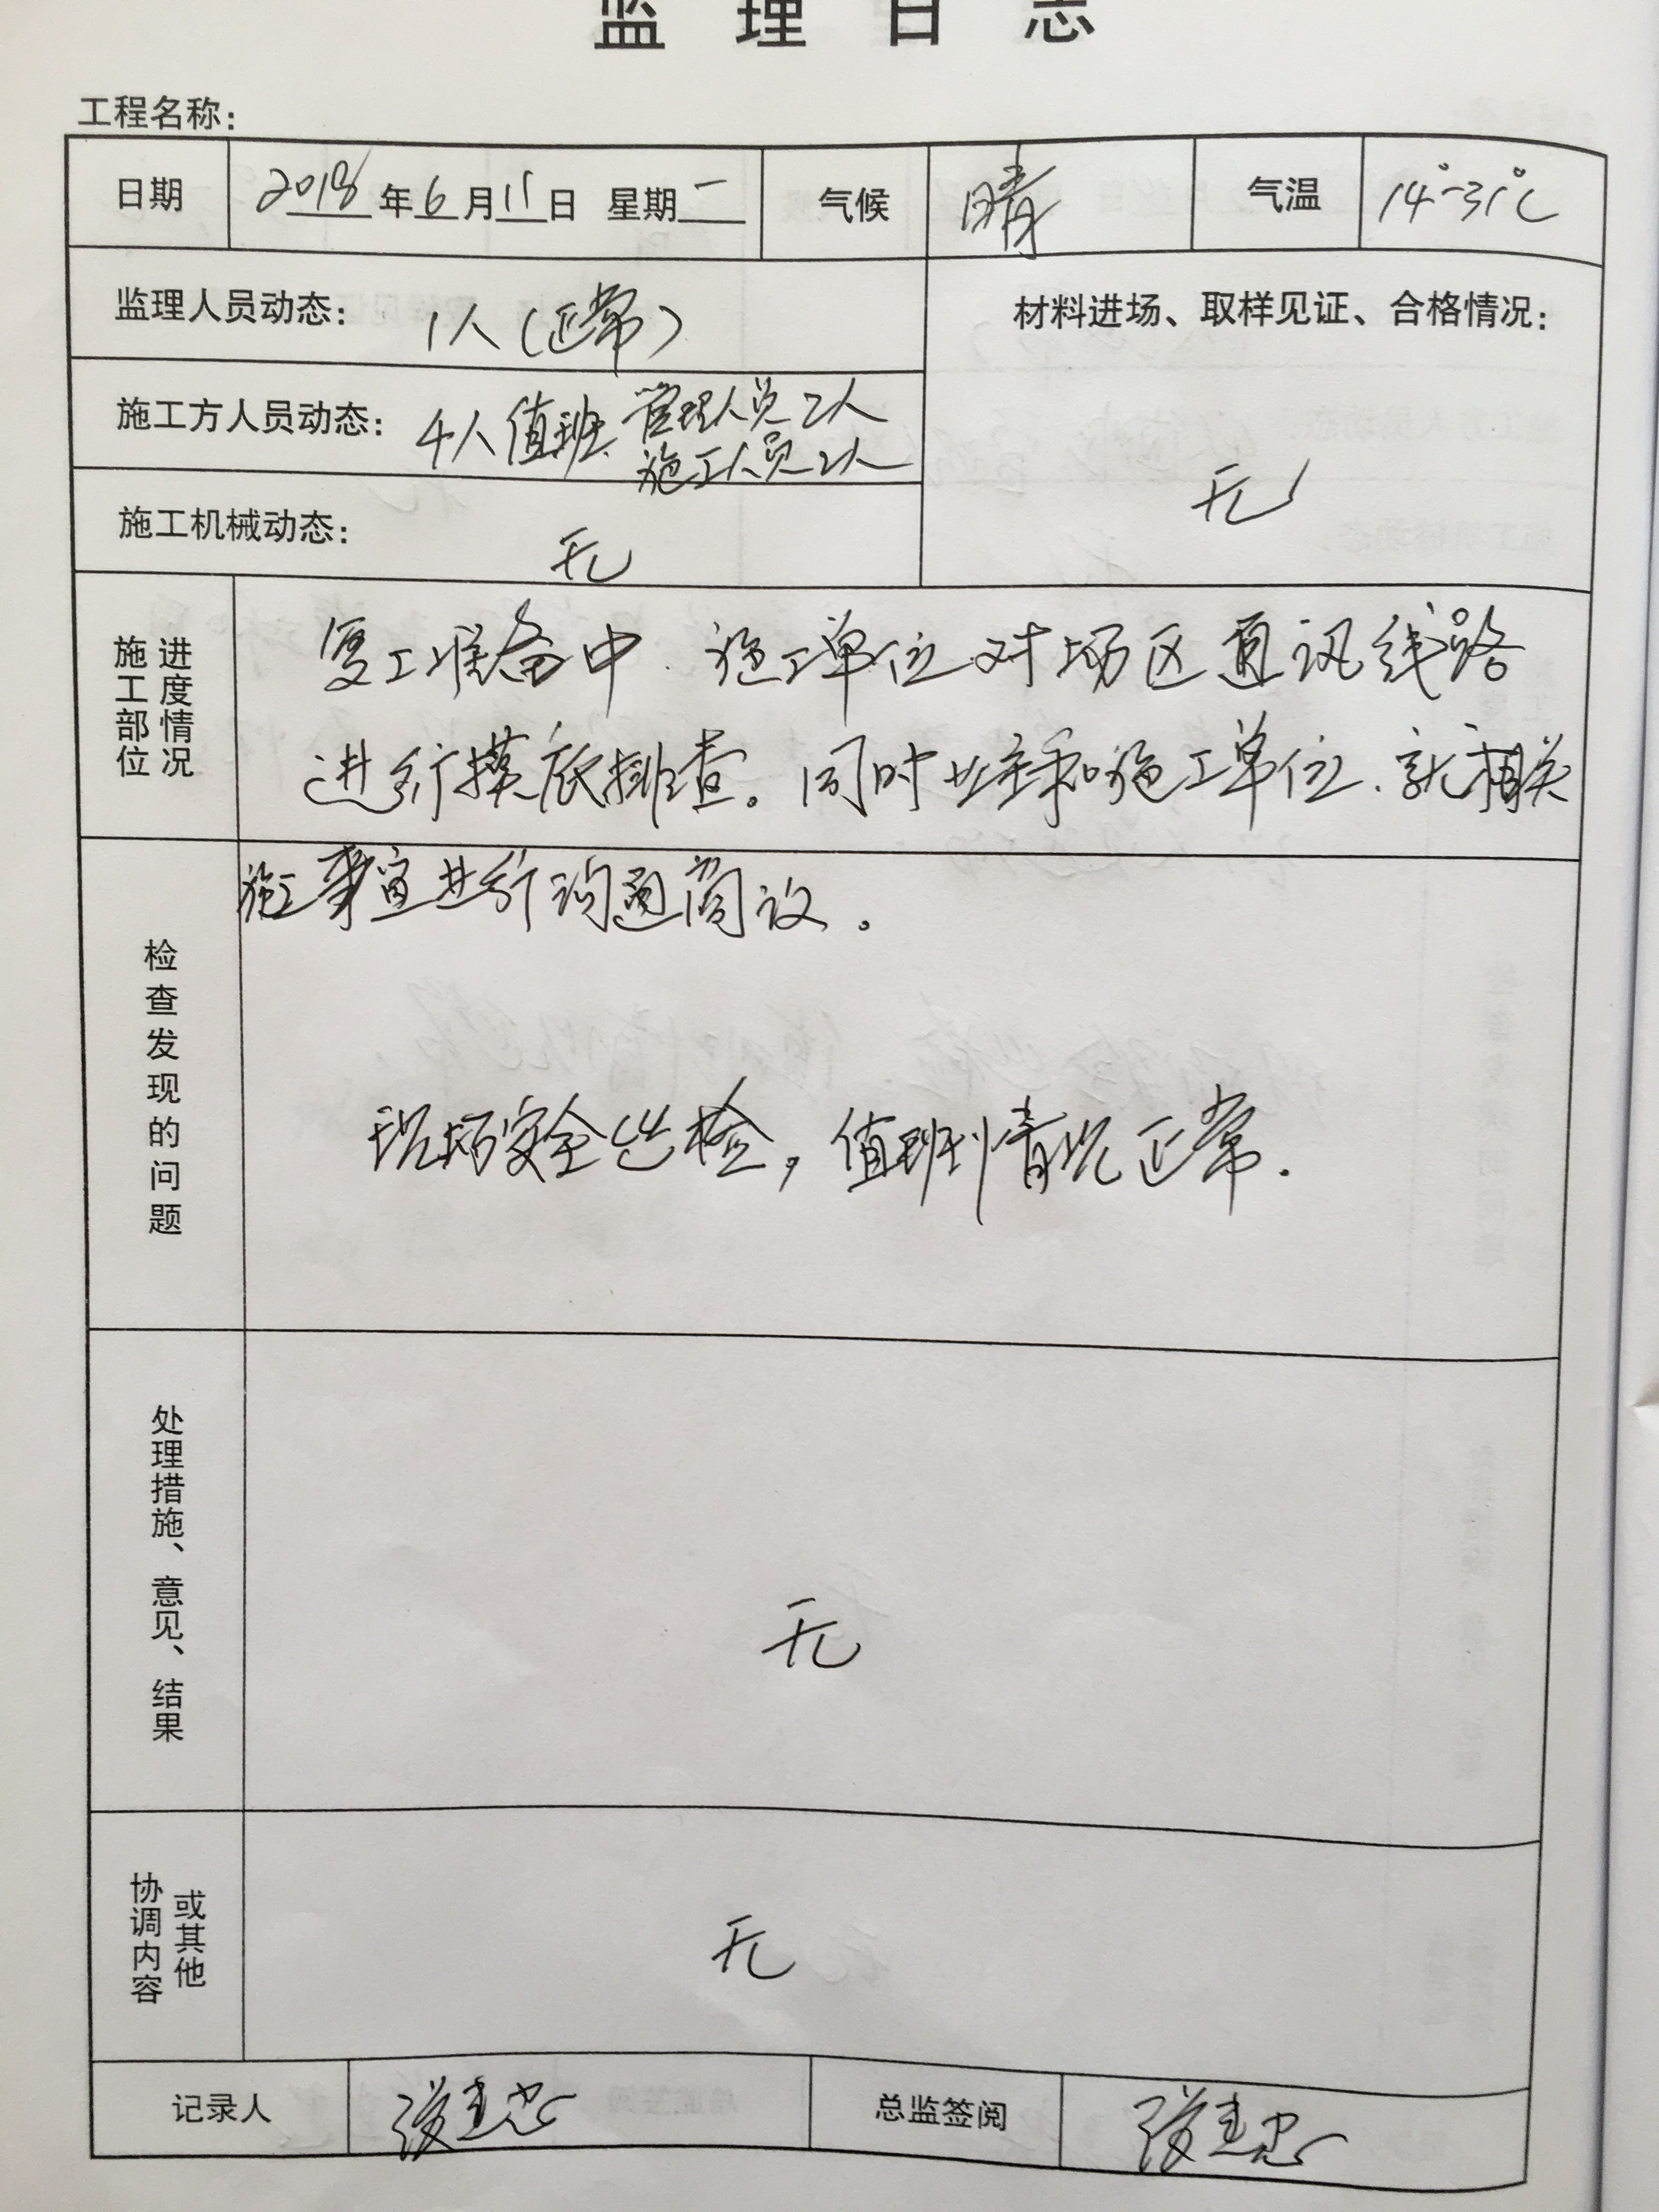 监理日志
工程名称:
日期 2018年6月11日 星期一 气候 晴 气温 14°-31℃
监理人员动态: 1人(正常)
材料进场、取样见证、合格情况:
无
施工方人员动态: 4人值班. 管理人员2人
施工人员2人
施工机械动态: 无
施工部位
进度情况
复工准备中. 施工单位对场区通讯线路
进行摸底排查。同时业主和施工单位.就相关
施工事宜进行沟通商议。
检查发现的问题
现场安全巡检,值班情况正常.
处理措施、意见、结果
无
协调内容
或其他
无
记录人 总监签阅